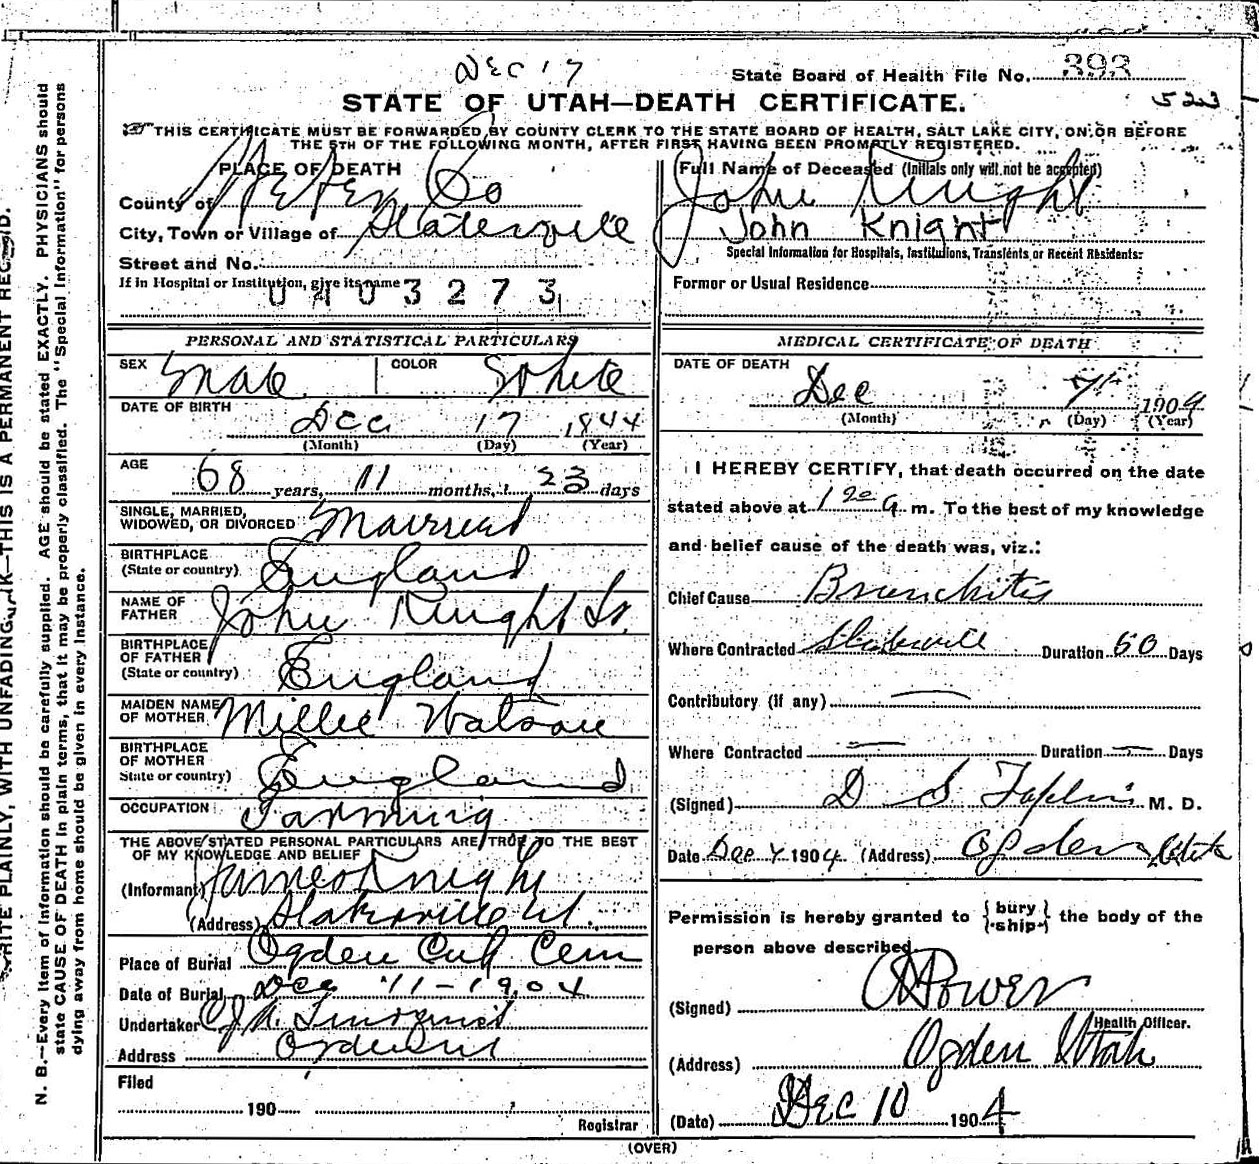 DEC 17
State Board of Health File No. 393
523
STATE OF UTAH—DEATH CERTIFICATE.
THIS CERTIFICATE MUST BE FORWARDED BY COUNTY CLERK TO THE STATE BOARD OF HEALTH, SALT LAKE CITY, ON OR BEFORE
THE 5TH OF THE FOLLOWING MONTH, AFTER FIRST HAVING BEEN PROMPTLY REGISTERED.
PLACE OF DEATH
County of Weber Co
City, Town or Village of Slatersville
Street and No.
If in Hospital or Institution, give its name
0403273
Full Name of Deceased (Initials only will not be accepted)
John Knight
John Knight
Special Information for Hospitals, Institutions, Transients or Recent Residents:
Former or Usual Residence
PERSONAL AND STATISTICAL PARTICULARS
SEX Male COLOR White
DATE OF BIRTH
Dec 17 1844
(Month) (Day) (Year)
AGE
68 years, 11 months, 23 days
SINGLE, MARRIED,
WIDOWED, OR DIVORCED Married
BIRTHPLACE
(State or country) England
NAME OF
FATHER John Knight Sr.
BIRTHPLACE
OF FATHER
(State or country) England
MAIDEN NAME
OF MOTHER Millie Watson
BIRTHPLACE
OF MOTHER
State or country) England
OCCUPATION Farming
THE ABOVE STATED PERSONAL PARTICULARS ARE TRUE TO THE BEST
OF MY KNOWLEDGE AND BELIEF
(Informant) James Knight
(Address) Slatersville Ut.
Place of Burial Ogden City Cem
Date of Burial Dec 11-1904
Undertaker
Address Ogden Ut
Filed
190
Registrar
MEDICAL CERTIFICATE OF DEATH
DATE OF DEATH
Dec 7 1904
(Month) (Day) (Year)
I HEREBY CERTIFY, that death occurred on the date
stated above at 1 20 a m. To the best of my knowledge
and belief cause of the death was, viz.:
Chief Cause Bronchitis
Where Contracted Slaterville Duration 60 Days
Contributory (if any) —
Where Contracted — Duration — Days
(Signed) D S M. D.
Date Dec 7 1904. (Address) Ogden Utah
Permission is hereby granted to {bury ship} the body of the
person above described.
(Signed) Power
Health Officer.
(Address) Ogden Utah
(Date) Dec 10 1904
(OVER)
WRITE PLAINLY, WITH UNFADING INK—THIS IS A PERMANENT RECORD.
N. B.—Every item of information should be carefully supplied. AGE should be stated EXACTLY. PHYSICIANS should
state CAUSE OF DEATH in plain terms, that it may be properly classified. The "Special Information" for persons
dying away from home should be given in every instance.